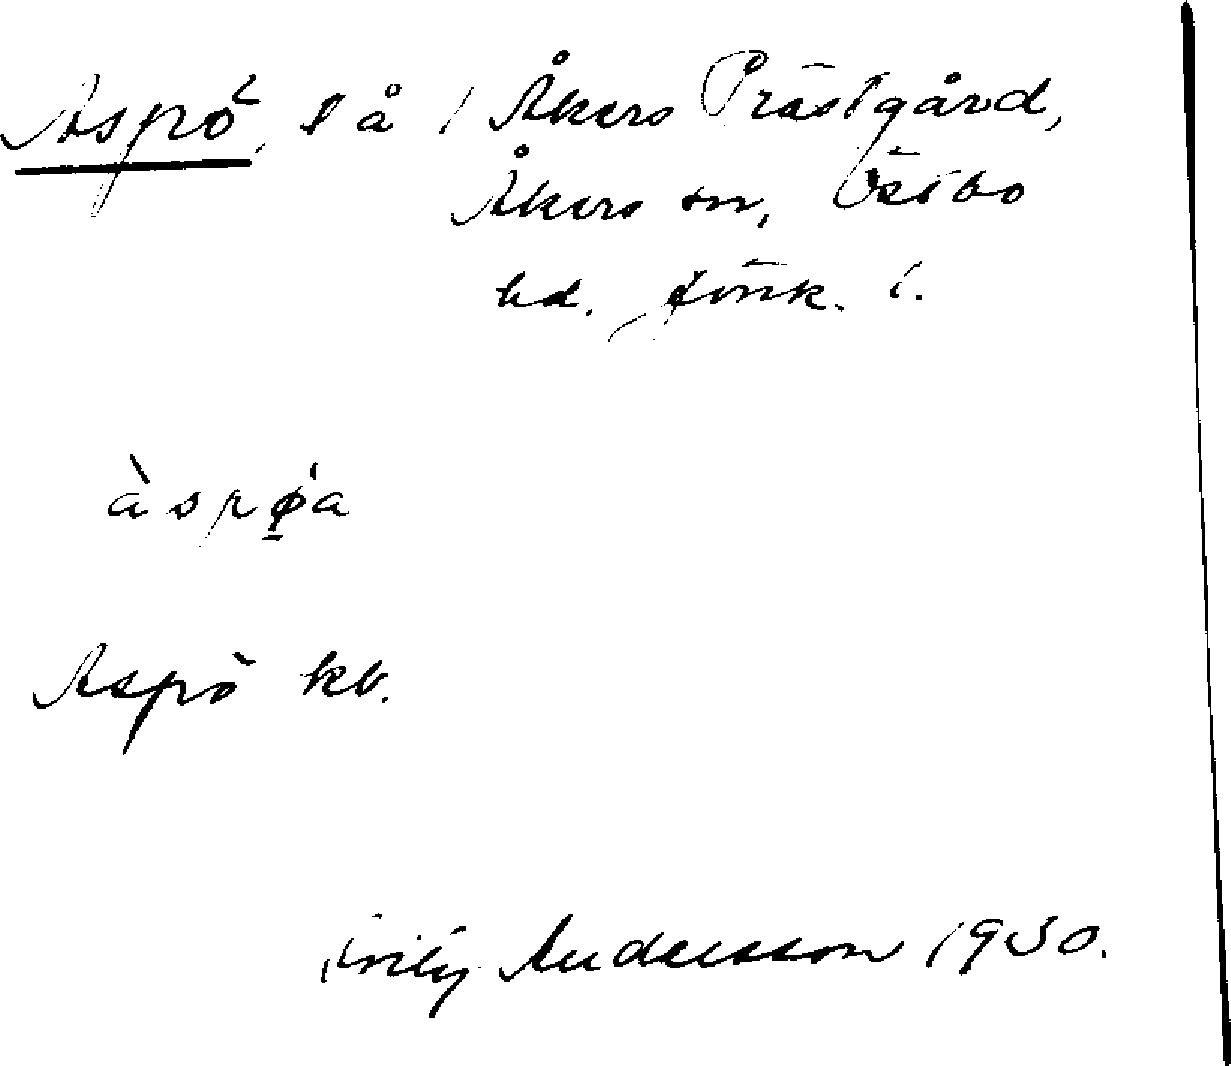 Aspö, lå / Åkers Prästgård,
Åkers sn, Östbo
hd. Jönk. l.
àspǿ̱a
Aspö kb.
Andersson 1930.